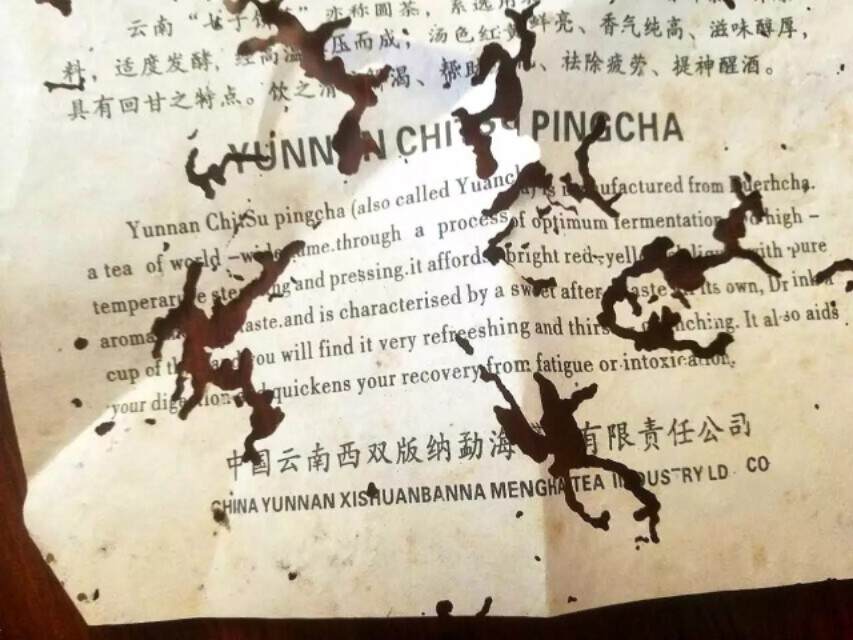 云南“七子饼茶”亦称圆茶，系选用
料，适度发酵，经高温 压而成，汤色红黄鲜亮、香气纯高、滋味醇厚，
具有回甘之特点。饮之清 解渴、帮助 化、祛除疲劳、提神醒酒。
YUNNAN CHITSU PINGCHA
Yunnan ChitSu pingcha (also called Yuancha) is manufactured from Puerhcha.
a tea of world -wide fame.through a process of optimum fermentation and high -
temperarure steaming and pressing.it affords bright red-yellow with pure
aroma taste.and is characterised by a sweet after- taste its own, Drink a
cup of and you will find it very refreeshing and thirst quenching. It also aids
your digestion and quickens your recovery from fatigue or intoxication.
中国云南西双版纳勐海 有限责任公司
CHINA YUNNAN XISHUANBANNA MENGHAI TEA INDUSTRY LD CO